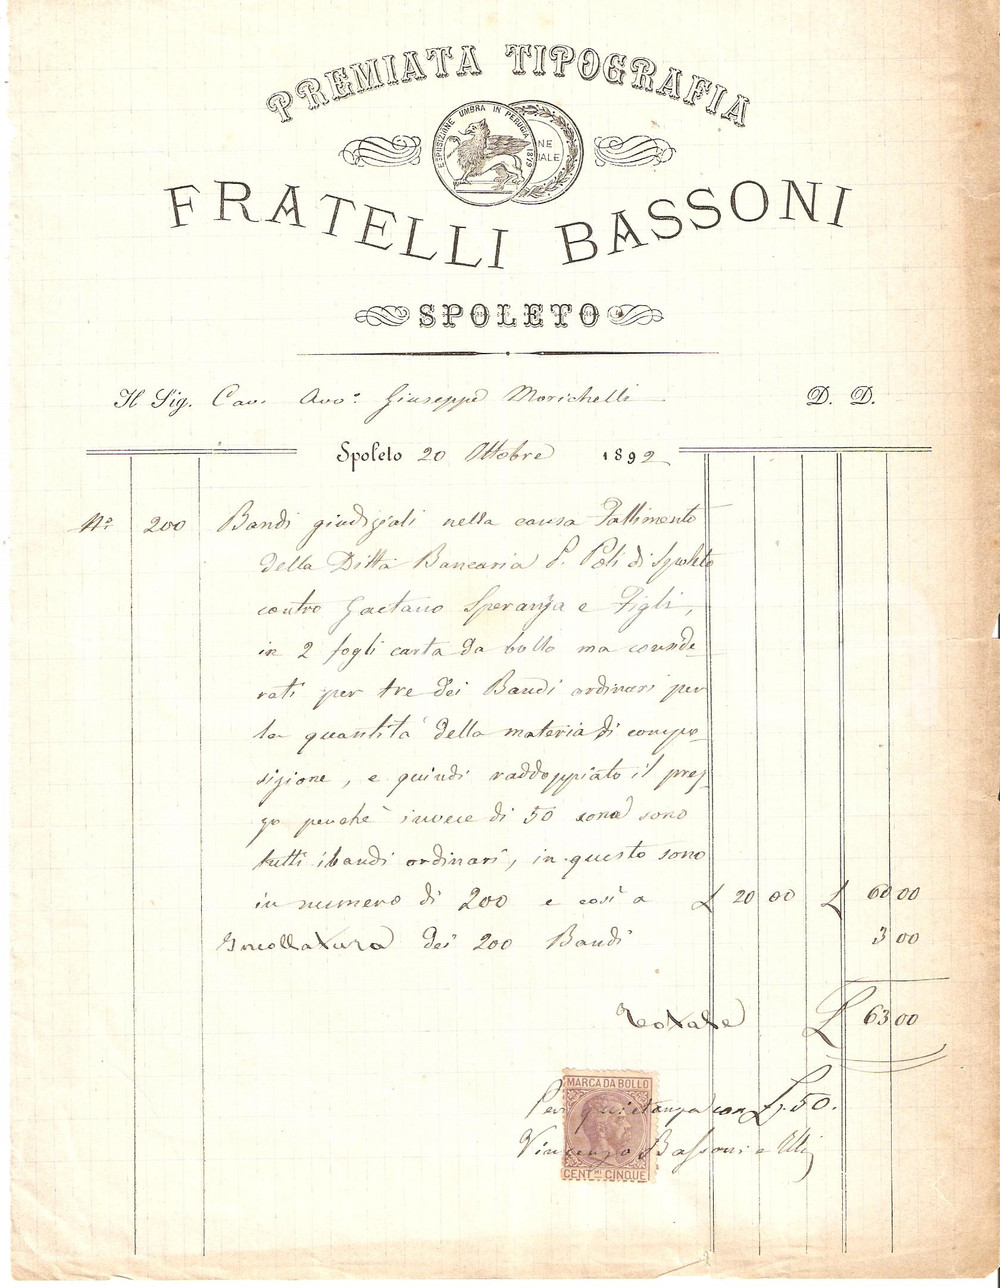 PREMIATA TIPOGRAFIA
ESPOSIZIONE UMBRA IN PERUGIA 1879
NE
IALE
FRATELLI BASSONI
SPOLETO
Il Sig. Cav. Avv.º Giuseppe Morichelli D. D.
Spoleto 20 Ottobre 1892
Nº 200 Bandi giudiziali nella causa Fallimento
della Ditta Bancaria P. Poli di Spoleto
contro Gaetano Speranza e Figli,
in 2 fogli carta da bollo ma conside-
rati per tre dei Bandi ordinari per
la quantità della materia di compo-
sizione, e quindi raddoppiato il prez-
zo perchè invece di 50 come sono
tutti i bandi ordinari, in questo sono
in numero di 200 e così a £ 20 00 £ 60 00
Incollatura dei 200 Bandi 3 00
Totale £ 63 00
MARCA DA BOLLO
Per quietanza con £. 50.
Vincenzo Bassoni e
CENT.MI CINQUE